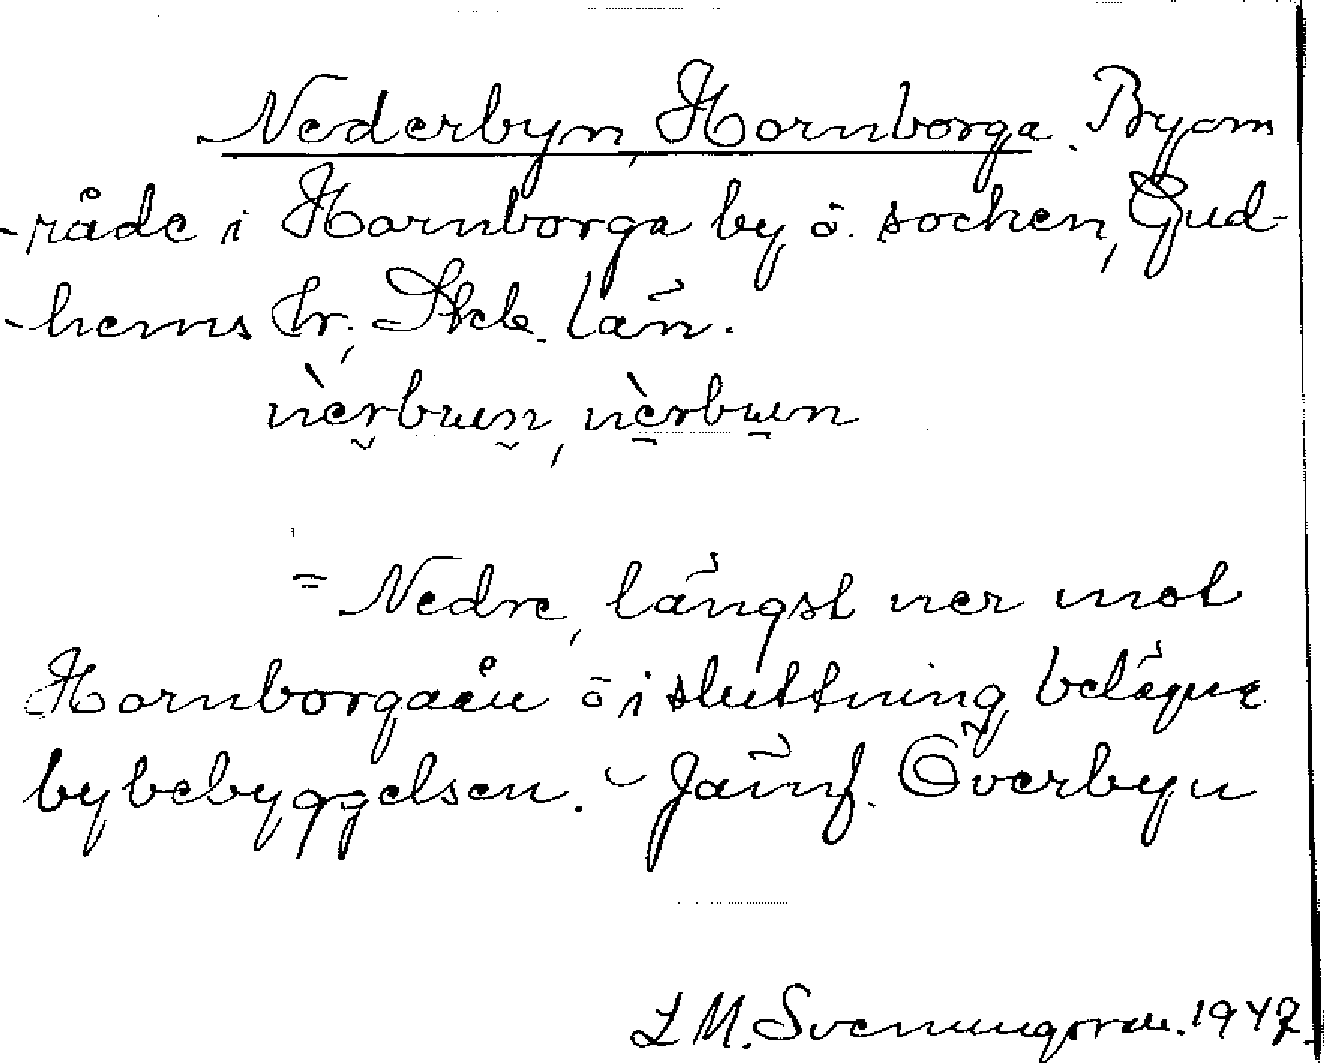 Nederbyn, Hornborga. Byom
-råde i Hornborga by o. socken, Gud-
-hems hr, Skb. län.
nèrbun, nèrbun
= Nedre, längst ner mot
Hornborgaån o i sluttning belägna
bybebyggelsen. - Jämf. Överbyn
L M. Svenungsson. 1947.